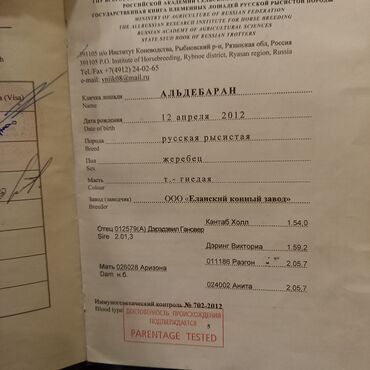 РОССИЙСКОЙ АКАДЕМИИ
ГОСУДАРСТВЕННАЯ КНИГА ПЛЕМЕННЫХ ЛОШАДЕЙ РУССКОЙ РЫСИСТОЙ ПОРОДЫ
MINISTRY OF AGRICULTURE OF RUSSIAN FEDERATION
THE ALLRUSSIAN RESEARCH INSTITUTE FOR HORSE BREEDING
RUSSIAN ACADEMY OF AGRICULTURAL SCIENCES
STATE STUD BOOK OF RUSSIAN TROTTERS
391105 п/о Институт Коневодства, Рыбновский р-н, Рязанская обл, Россия
391105 P.O. Institute of Horsebreeding, Rybnoe district, Ryazan region, Russia
Tel./Fax +7(4912) 24-02-65
e-mail: vniik08@mail.ru
(Visa)
Кличка лошади АЛЬДЕБАРАН
Name
Дата рождения 12 апреля 2012
Date of birth
Порода русская рысистая
Breed
Пол жеребец
Sex
Масть т.- гнедая
Colour
Завод (заводчик) ООО «Еланский конный завод»
Breeder
Кантаб Холл 1.54,0
Отец 012579(А) Дэрэдэвил Гановер
Sire 2.01,3
Дэринг Виктория 1.59,2
011186 Разгон 2.05,7
Мать 026028 Аризона
Dam н б.
024002 Анита 2.05,7
Иммуногенетический контроль № 702-2012
Blood type
ДОСТОВЕРНОСТЬ ПРОИСХОЖДЕНИЯ
ПОДТВЕРЖДАЕТСЯ
5
PARENTAGE TESTED